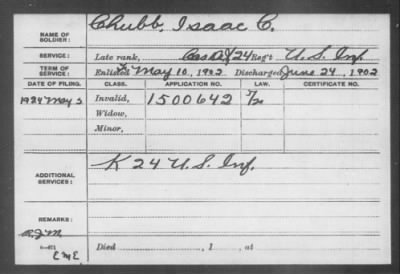 NAME OF SOLDIER: Chubb, Isaac C.
SERVICE: Late rank, Co. 24 Reg't U.S. Inf.
TERM OF SERVICE: Enlisted May 10, 1902 Discharged June 24, 1902
DATE OF FILING. CLASS. APPLICATION NO. LAW. CERTIFICATE NO.
1924 May 5 Invalid, 1500642
Widow,
Minor,
ADDITIONAL SERVICES: K 24 U.S. Inf.
REMARKS:
Died , 1 , at
EME